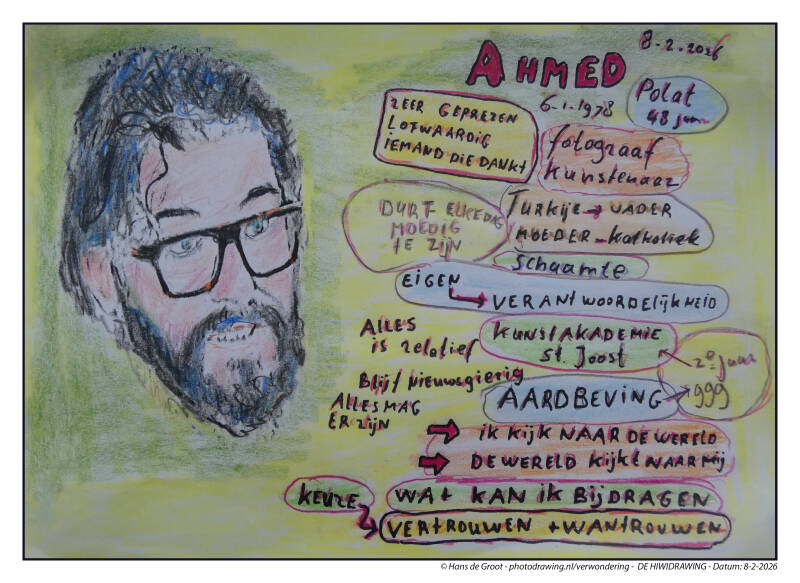 8-2-2026
AHMED
Polat
48 jaar
6-1-1978
ZEER GEPREZEN
LOFWAARDIG
IEMAND DIE DANKT
fotograaf
kunstenaar
DURF ELKE DAG
MOEDIG
TE ZIJN
TURKIJE → VADER
MOEDER - Katholiek
Schaamte
EIGEN
VERANTWOORDELIJKHEID
ALLES
is relatief
KUNSTAKADEMIE
St. Joost
2e jaar
999
Blijf nieuwsgierig
ALLES MAG
ER ZIJN
AARDBEVING
→ IK KIJK NAAR DE WERELD
→ DE WERELD KIJKT NAAR MIJ
KEUZE
WAT KAN IK BIJDRAGEN
VERTROUWEN + WANTROUWEN
© Hans de Groot - photodrawing.nl/verwondering - DE HIWIDRAWING - Datum: 8-2-2026